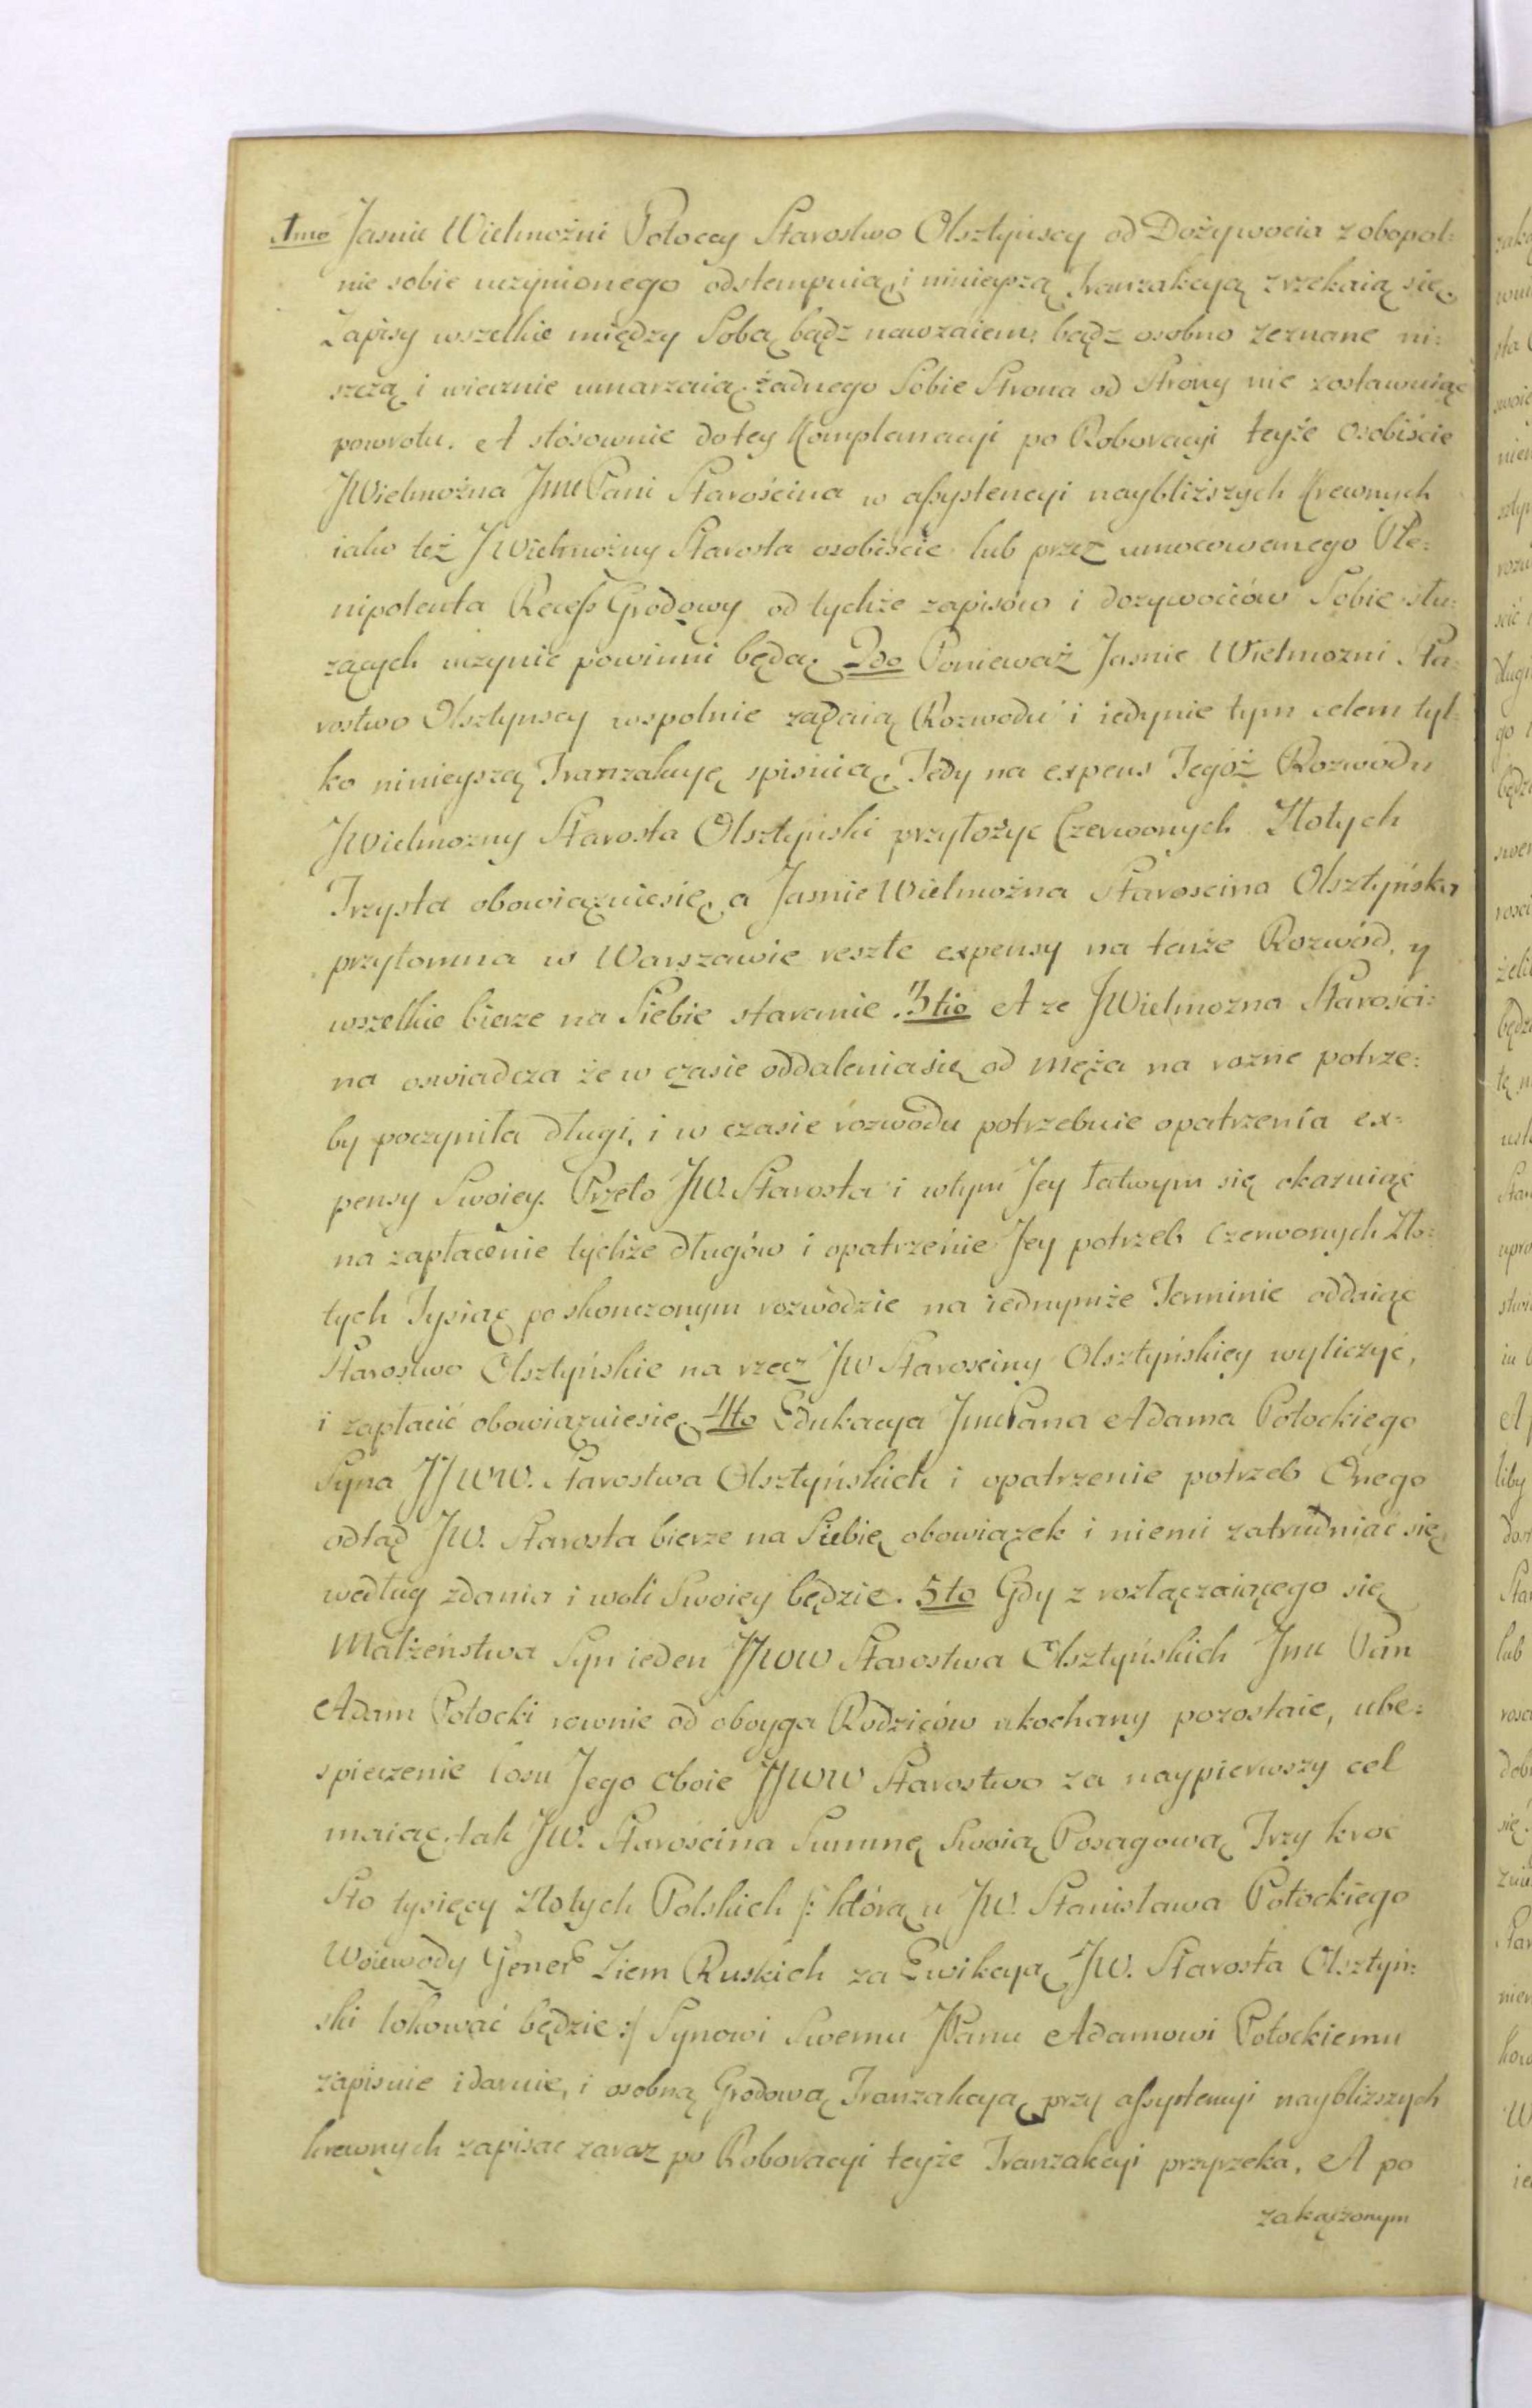 1mo Jasnie Wielmożni Potoccy Starostwo Olsztyńscy od Dożywocia zobopol:
nie sobie uczynionego odstempuią, i ninieyszą Tranzakcyą zrzekaią się,
Zapisy wszelkie między Sobą bądz nawzaiem, bądz osobno zeznane ni:
szczą i wiecznie umarzaią, żadnego Sobie Strona od Strony nie zostawuiąc
powrotu. A stósownie do tey Komplanacyi po Roboracyi teyże osobiście
JWielmożna JmePani Starościna w assystencyi naybliższych Krewnych
iako też JWielmożny Starosta osobiście lub przez umocowanego Ple:
nipotenta Recess Grodowy od tychże zapisów i dozywociów Sobie słu:
zących uczynic powinni będą. 2do Ponieważ Jasnie Wielmozni Sta:
rostwo Olsztynscy wspolnie ządaią Rozwodu i iedynie tym celem tyl:
ko ninieyszą Tranzakcyę spisuią, Tedy na expens Tegóż Rozwodu
JWielmozny Starosta Olsztyński przyłożyc Czerwonych Złotych
Trzysta obowiązuiesię, a Jasnie Wielmożna Staroscina Olsztyńska
przytomna w Warszawie reszte expensy na tenże Rozwód, y
wszelkie bierze na Siebie staranie. 3tio A ze JWielmozna Starości:
na oswiadcza że w czasie oddaleniasię od męża na rozne potrze:
by poczyniła długi, i w czasie rozwodu potrzebuie opatrzenia ex:
pensy Swoiey. Przeto JW. Starosta i wtym Jey łatwym się okazuiąc
na zapłacenie tychże długów i opatrzenie Jey potrzeb Czerwonych Zło:
tych Tysiąc po skonczonym rozwodzie na iednymże Terminie oddaiąc
Starostwo Olsztyńskie na rzecz JW Starosciny Olsztyńskiey wyliczyć,
i zapłacić obowiązuiesię. 4to Edukacya JmePana Adama Potockiego
Syna JJWW. Starostwa Olsztyńskich i opatrzenie potrzeb Onego
odtąd JW. Starosta bierze na Siebie obowiązek i niemi zatrudniać się,
według zdania i woli Swoiey będzie. 5to Gdy z rozłączaiącego się
Małżeństwa Syn ieden JJWW Starostwa Olsztyńskich Jme Pan
Adam Potocki rownie od oboyga Rodziców ukochany pozostaie, ube:
spieczenie losu Jego oboie JJWW Starostwo za naypierwszy cel
maiąc, tak JW. Staroscina Summę Swoią Posagową Trzy kroc
Sto tysięcy Złotych Polskich /: którą u JW. Stanisława Potockiego
Woiewody Gener Ziem Ruskich za Ewikcyą JW. Starosta Olsztyń:
ski lokować będzie :/ Synowi Swemu JPanu Adamowi Potockiemu
zapisuie i daruie, i osobną Grodową Tranzakcyą przy assystencyi naybliższych
krewnych zapisac zaraz po Roboracyi teyże Tranzakcyi przyrzeka. A po
zakączonym